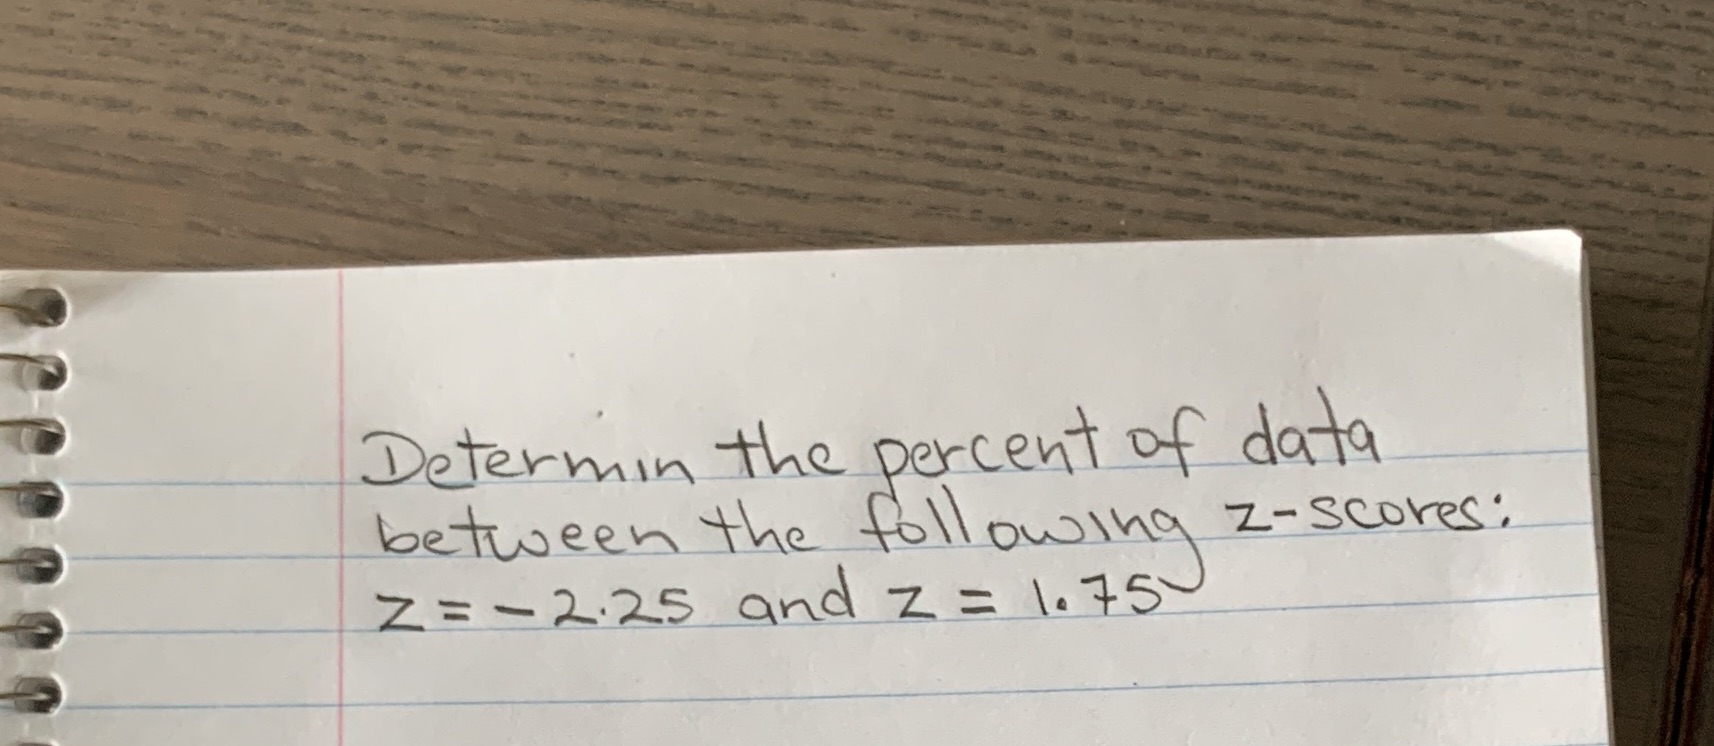 Determin the percent of data
between the following z-scores:
z = -2.25 and z = 1.75